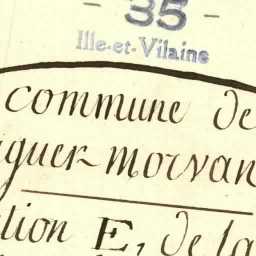 - 35 -
Ille-et-Vilaine
commune de
guer-morvan
tion E, de la